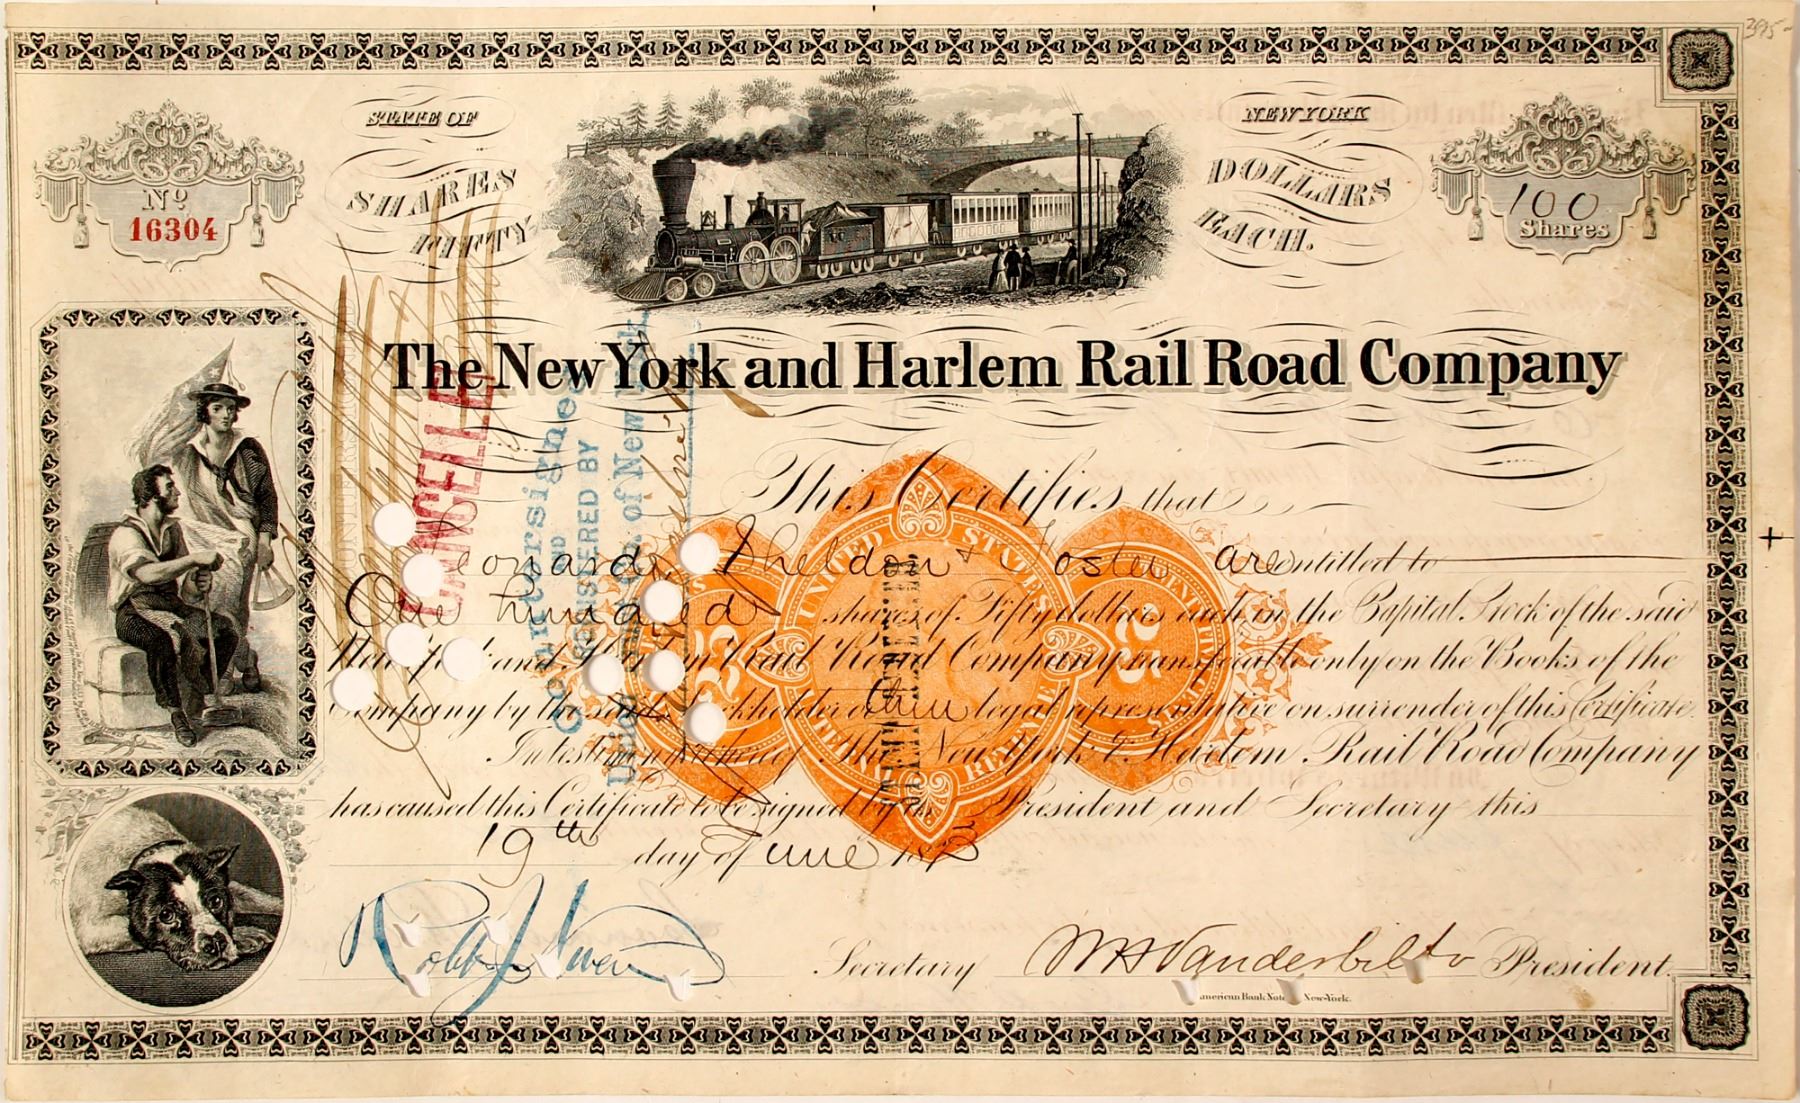 395-
STATE OF
NEW YORK
No
16304
SHARES
FIFTY
DOLLARS
EACH.
100
Shares
The New York and Harlem Rail Road Company
CANCELLED
Countersigned
AND
BY
of New York
This Certifies that
Leonard, Sheldon & Foster are entitled to
One hundred shares of Fifty dollars each in the Capital Stock of the said
New York and Harlem Rail Road Company transferable only on the Books of the
Company by the said Stockholder or their legal representative on surrender of this Certificate.
In testimony whereof The New York & Harlem Rail Road Company
has caused this Certificate to be signed by its President and Secretary this
19th day of June 187
UNITED STATES
INTERNAL REVENUE
25
25
Secretary
Wm H Vanderbilt President.
American Bank Note New-York.